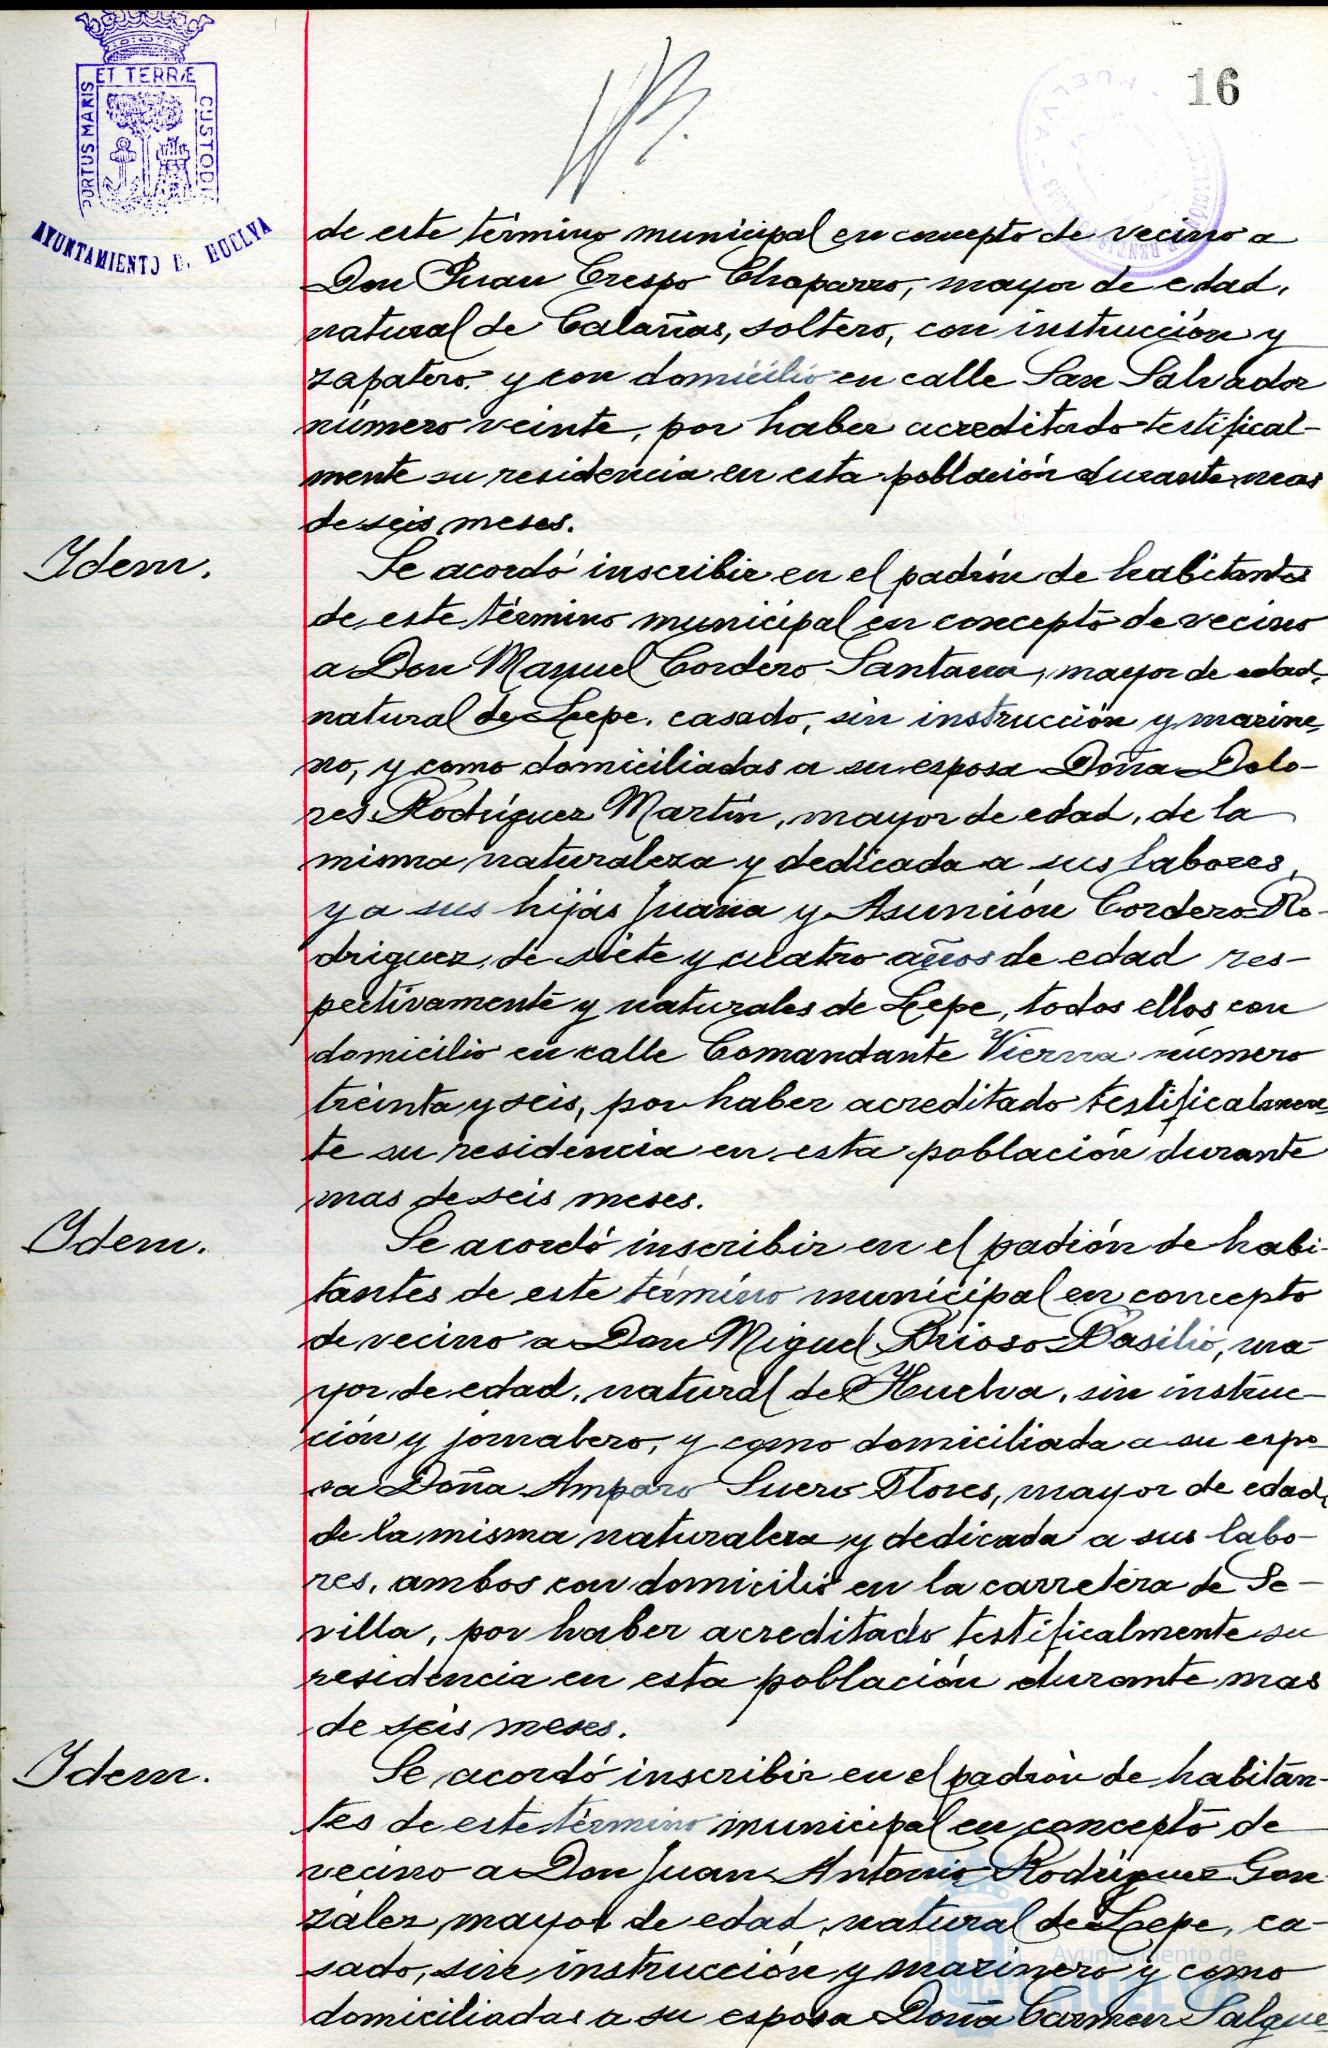 ET TERRÆ
PORTUS MARIS
CUSTODI
AYUNTAMIENTO D. HUELVA
HUELVA
16
de este término municipal en concepto de vecino a
Don Juan Crespo Chaparro, mayor de edad,
natural de Calañas, soltero, con instrucción y
zapatero y con domicilio en calle San Salvador
número veinte, por haber acreditado testifical-
mente su residencia en esta población durante mas
de seis meses.
Ydem.
Se acordó inscribir en el padrón de habitantes
de este término municipal en concepto de vecino
a Don Manuel Cordero Santana, mayor de edad,
natural de Lepe, casado, sin instrucción y marine-
ro, y como domiciliadas a su esposa Doña Dolo-
res Rodríguez Martín, mayor de edad, de la
misma naturaleza y dedicada a sus labores,
y a sus hijas Juana y Asunción Cordero Ro-
driguez, de siete y cuatro años de edad res-
pectivamente y naturales de Lepe, todos ellos con
domicilio en calle Comandante Vierna número
treinta y seis, por haber acreditado testificalmen-
te su residencia en esta población durante
mas de seis meses.
Ydem.
Se acordó inscribir en el padrón de habi-
tantes de este término municipal en concepto
de vecino a Don Miguel Brioso Basilio, ma-
yor de edad, natural de Huelva, sin instruc-
ción y jornalero, y como domiciliada a su espo
sa Doña Amparo Suero Flores, mayor de edad,
de la misma naturaleza y dedicada a sus labo-
res, ambos con domicilio en la carretera de Se-
villa, por haber acreditado testificalmente su
residencia en esta población durante mas
de seis meses.
Ydem.
Se acordó inscribir en el padrón de habitan-
tes de este término municipal en concepto de
vecino a Don Juan Antonio Rodríguez Gon-
zález, mayor de edad, natural de Lepe, ca-
sado, sin instrucción y marinero y como
domiciliadas a su esposa Doña Carmen Salgue-
Ayuntamiento de
HUELVA